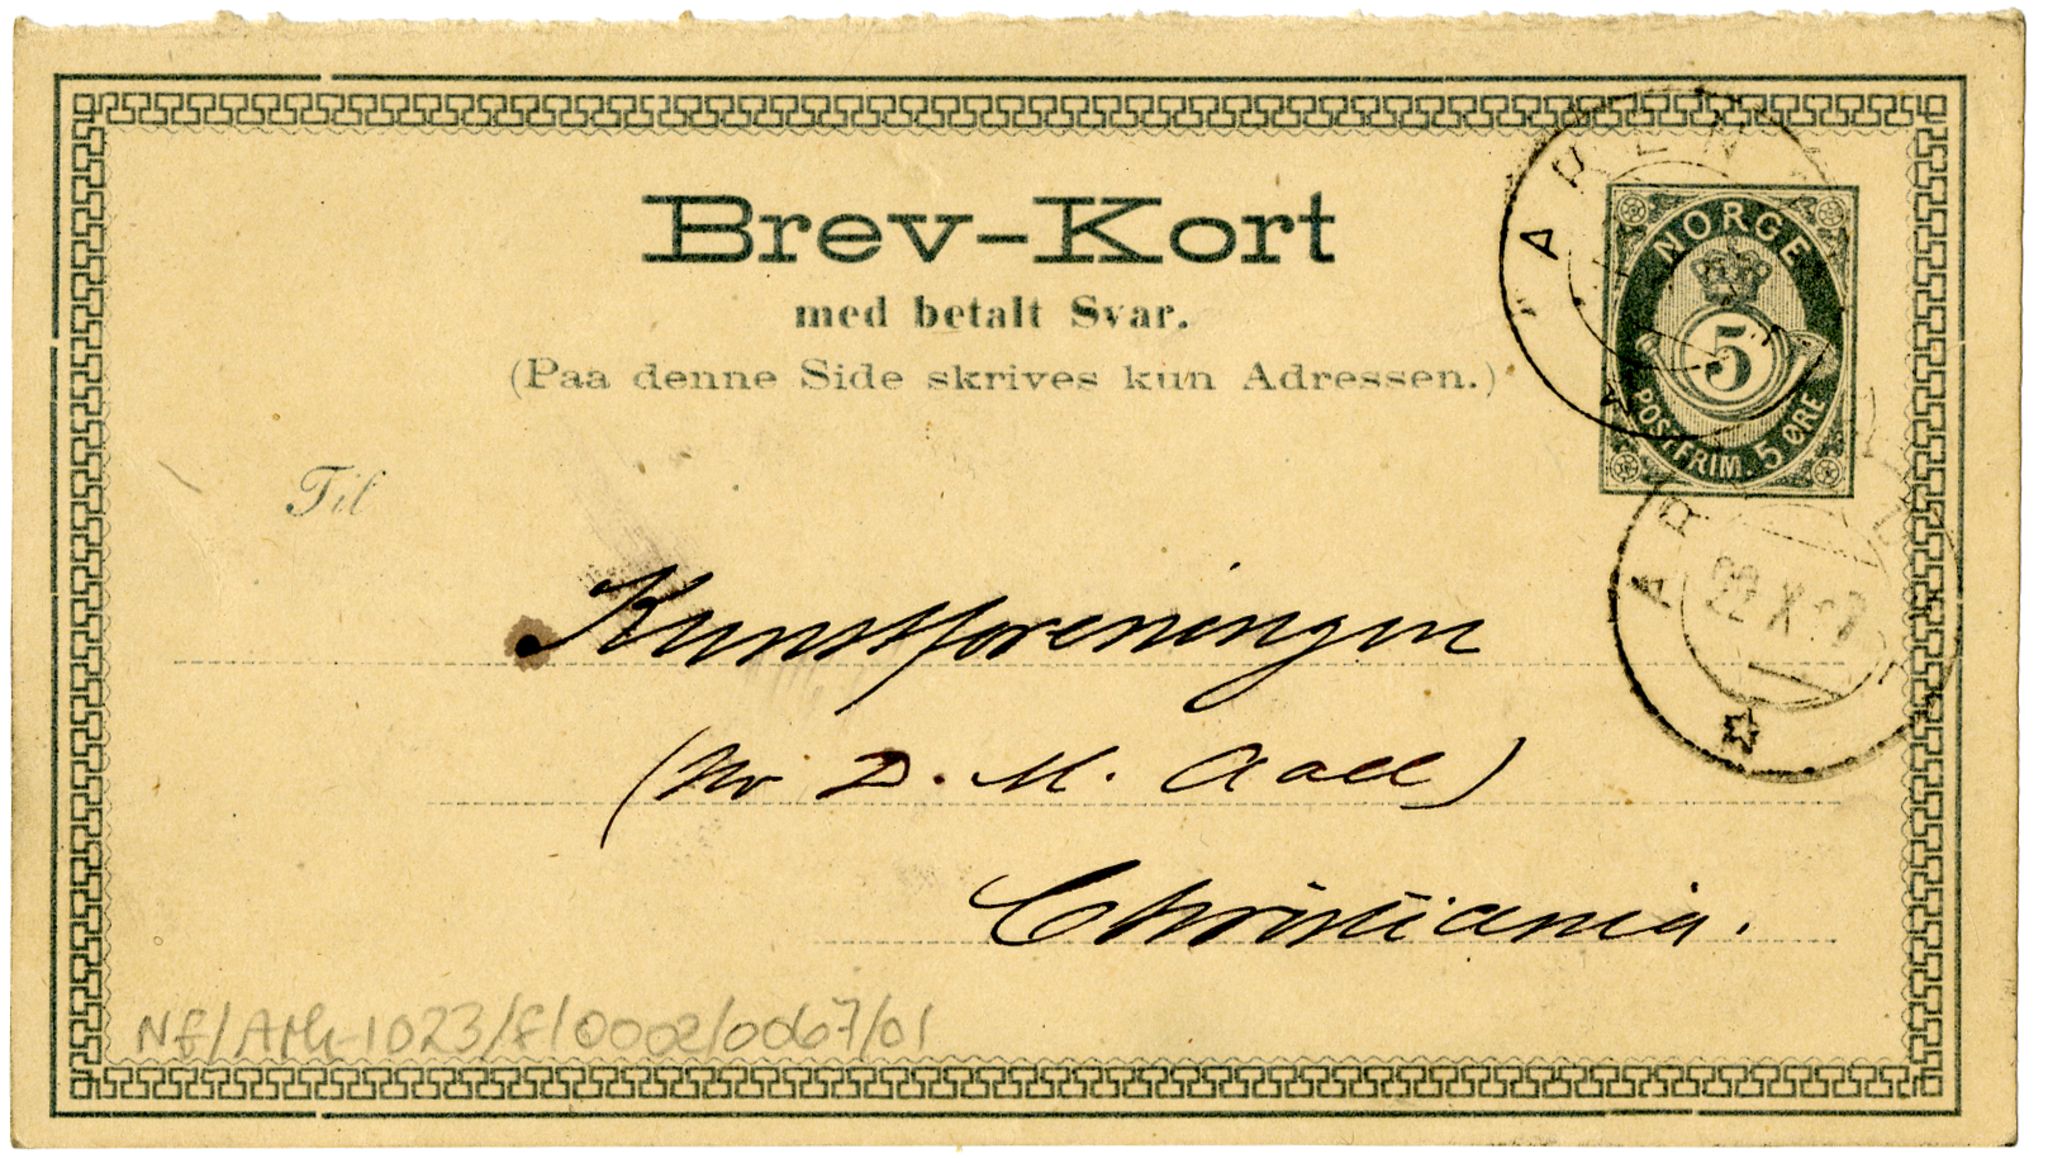 Brev-Kort
med betalt Svar.
(Paa denne Side skrives kun Adressen.)
NORGE
5
POSTFRIM. 5 ØRE
Til
Kunstforeningen
(Hr D. M. Aall)
Christiania.
22 X